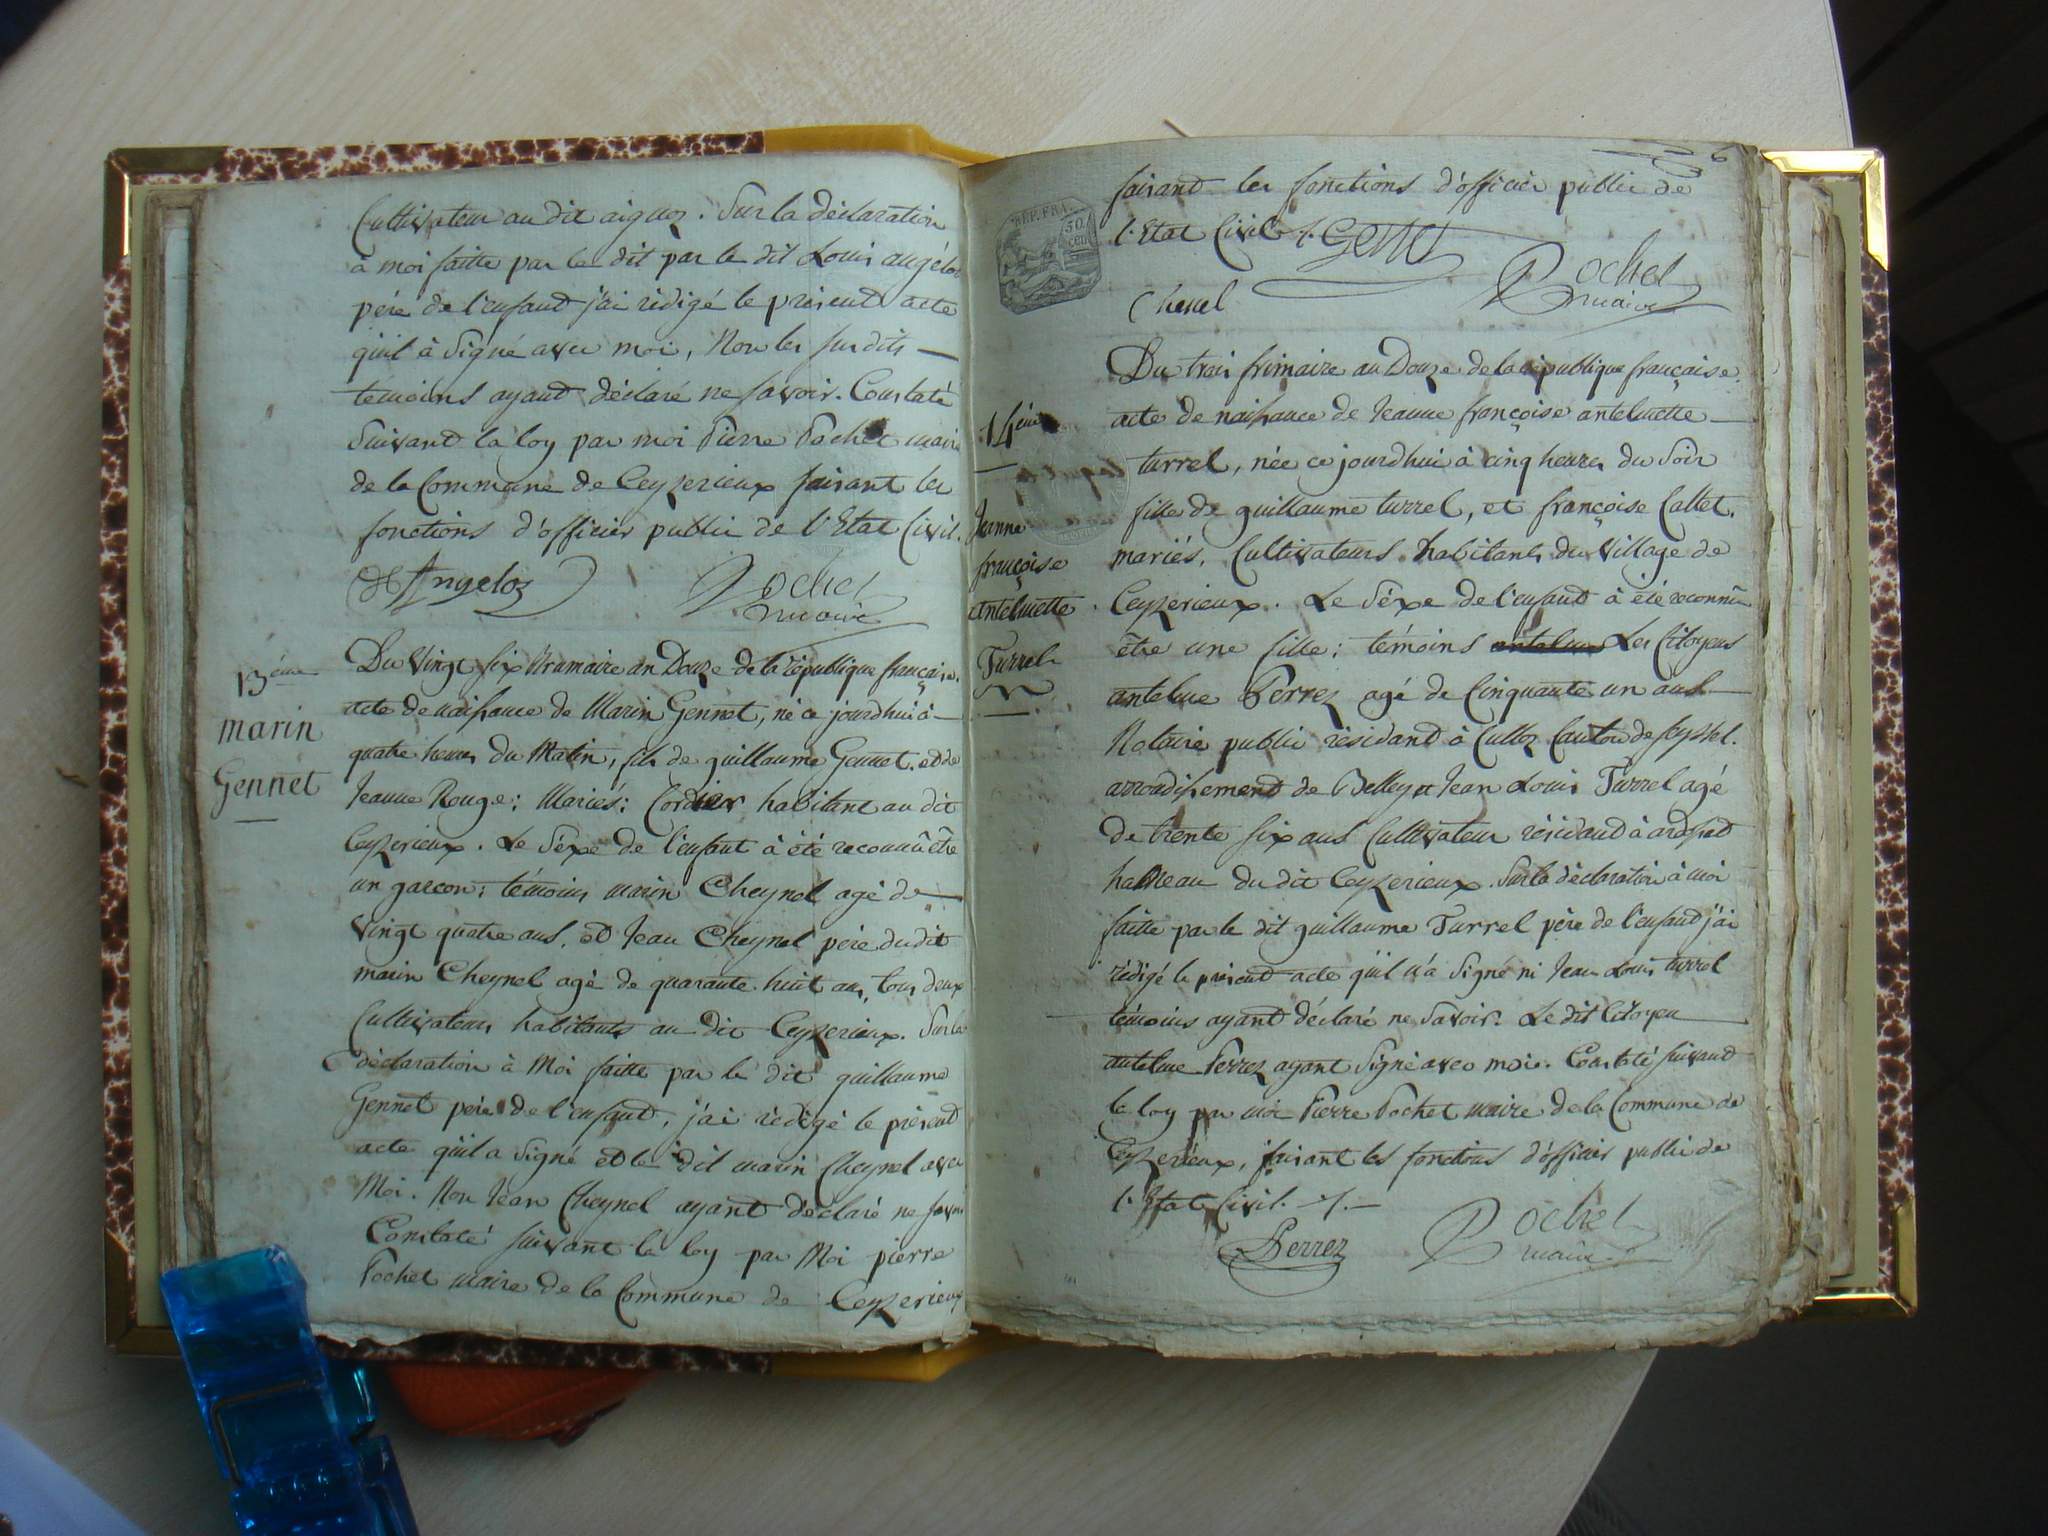 Cultivateur au dit aignoz. Sur la déclaration
à moi faitte par le dit par le dit Louis angéloz
père de l'enfant j'ai rédigé le présent acte
quil à Signé avec moi, Non les susdits —
temoins ayant déclaré ne savoir. Constaté
Suivant la loy par moi Pierre Pochet maire
de la Commune de Ceyzerieux faisant les
fonctions d'officier public de l'Etat Civil.
Angeloz Pochet
maire
13ème
marin
Gennet
Du Vingt six Brumaire an Douze de la république française.
acte de naissance de Marin Gennet, né ce jourdhui à
quatre heures du Matin, fils de guillaume Gennet, et de
Jeanne Rouge; Mariés; Cordier habitant au dit
Ceyzerieux. Le Séxe de l'enfant à été reconnû être
un garcon; témoins marin Cheynel agé de —
Vingt quatre ans, et Jean Cheynel père du dit
marin Cheynel agé de quarante huit ans, tous deux
Cultivateurs habitants au dit Ceyzerieux. Sur la
déclaration à Moi faitte par le dit guillaume
Gennet père de l'enfant, j'ai rédigé le présent
acte quil a signé et le dit marin Cheynel avec
Moi. Non Jean Cheynel ayant déclaré ne savoir
Constaté suivant la loy par Moi pierre
Pochet maire de la Commune de Ceyzerieux
6
REP. FRA.
50
cen
faisant les fonctions d'officier public de
l'Etat Civil ./. Genet
Pochet
maire
Chenel
14ème
Jeanne
françoise
antelmette
Turrel
Du trois frimaire an Douze de la république française.
acte de naissance de Jeanne françoise antelmette —
turrel, née ce jourdhui à cinq heures du Soir
fille de guillaume turrel, et françoise Caltet.
mariés, Cultivateurs habitants du Village de
Ceyzerieux. Le Séxe de l'enfant à été reconnû
être une fille; témoins Les Citoyens
antelme Perrez agé de Cinquante un ans —
Notaire public résidant à Culloz Canton de seyssel.
arrondissement de Belley et Jean Louis Turrel agé
de trente six ans Cultivateur résidant à ardosset
hameau du dit Ceyzerieux. Sur la déclaration à moi
faitte par le dit guillaume Turrel père de l'enfant j'ai
rédigé le présent acte quil n'a Signé ni Jean Louis turrel
témoins ayant déclaré ne Savoir. Le dit Citoyen —
antelme Perrez ayant Signé avec moi. Constaté suivant
la loy par moi Pierre Pochet maire de la Commune de
Ceyzerieux, faisant les fonctions d'officier public de
l'Etat Civil. ./. —
Perrez Pochet
maire